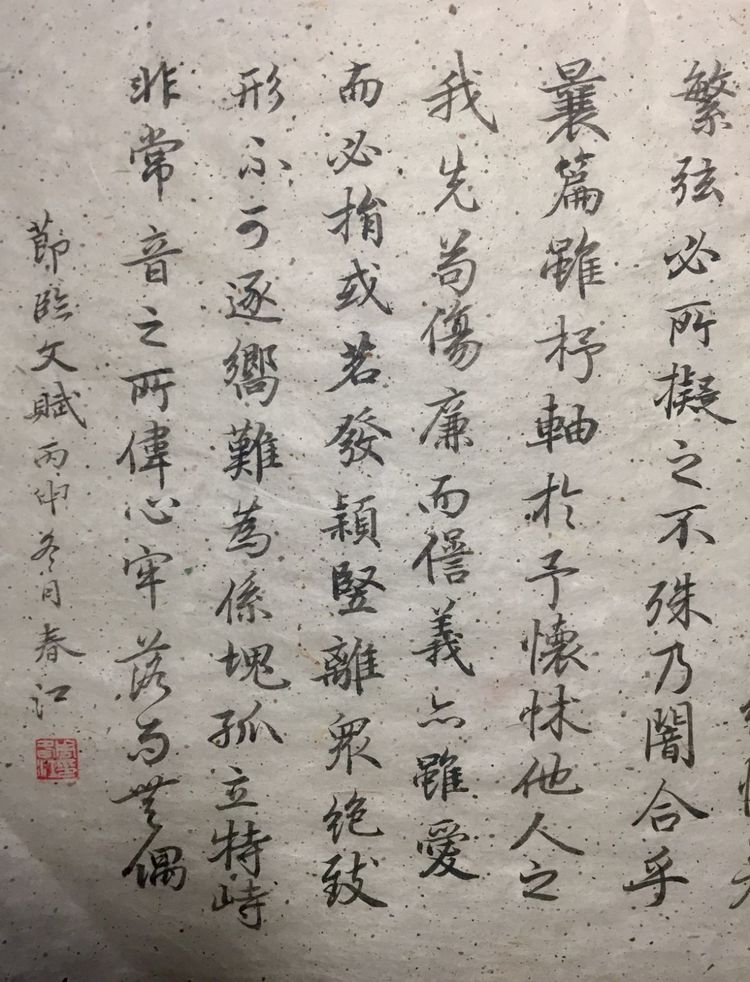 繁弦必所擬之不殊乃闇合乎
曩篇雖杼軸於予懷怵他人之
我先苟傷廉而諐義亦雖愛
而必捐或苕發穎竪離衆絶致
形不可逐嚮難為係塊孤立特峙
非常音之所偉心牢落而無偶
節臨文賦丙申冬月春江